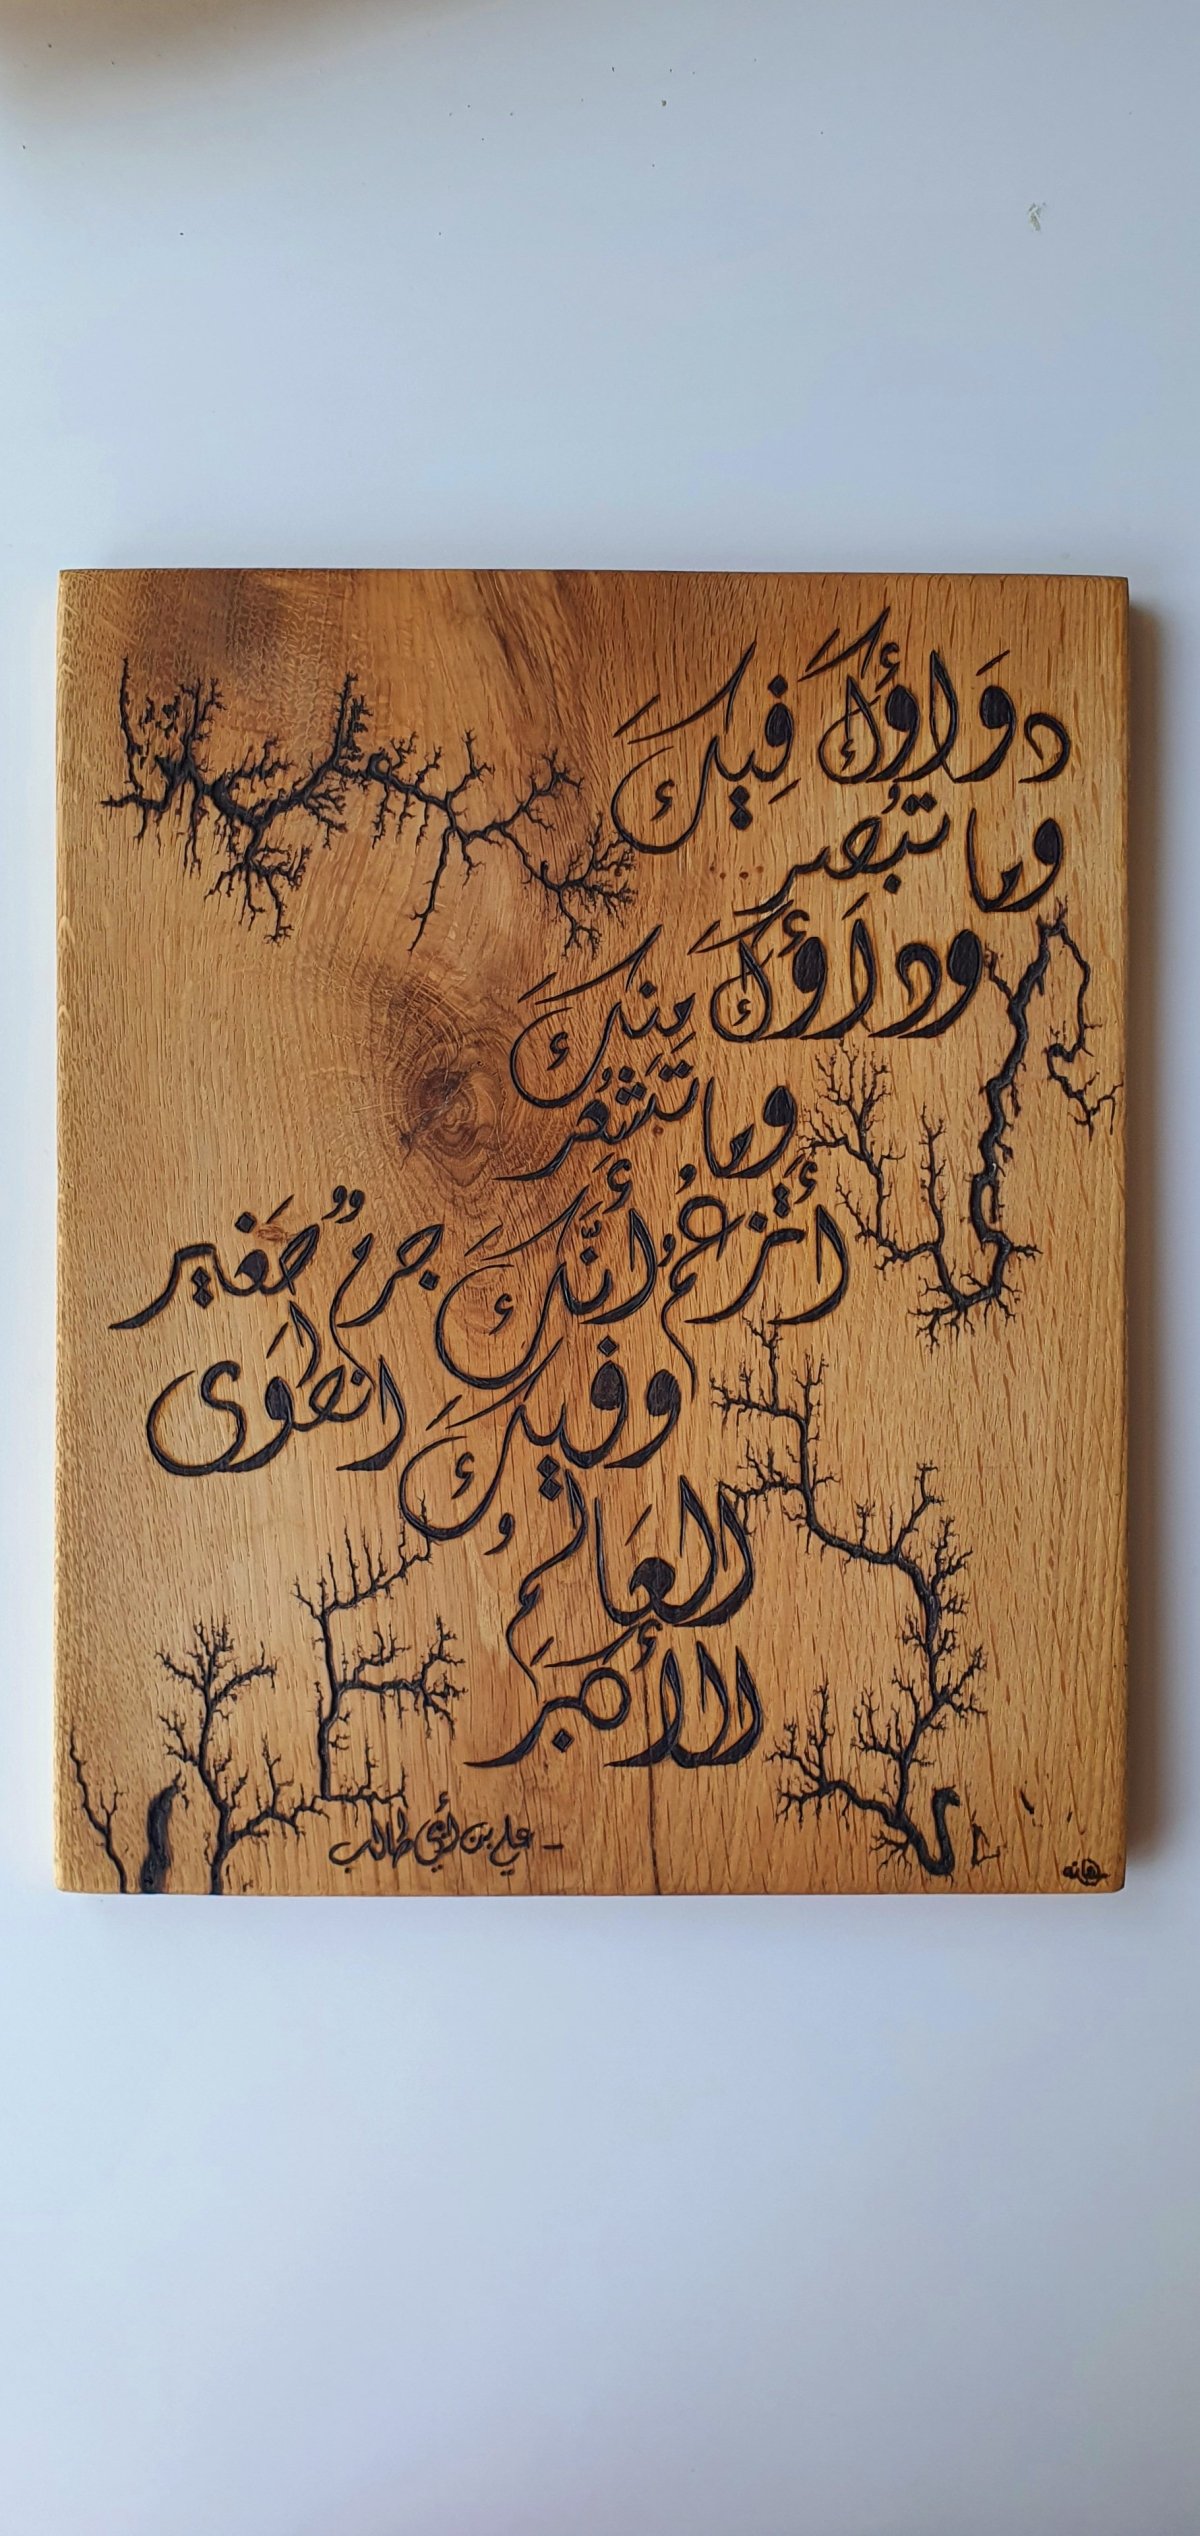 دوَاؤكَ فِيكَ
وما تُبصر
وداَؤكَ مِنكَ
وما تَشعُر
أتَزعُمُ أنَّكَ جرمٌ صَغير
وفيكَ انطَوى
العَالمُ
الأكبَر
- علي بن أبي طالب